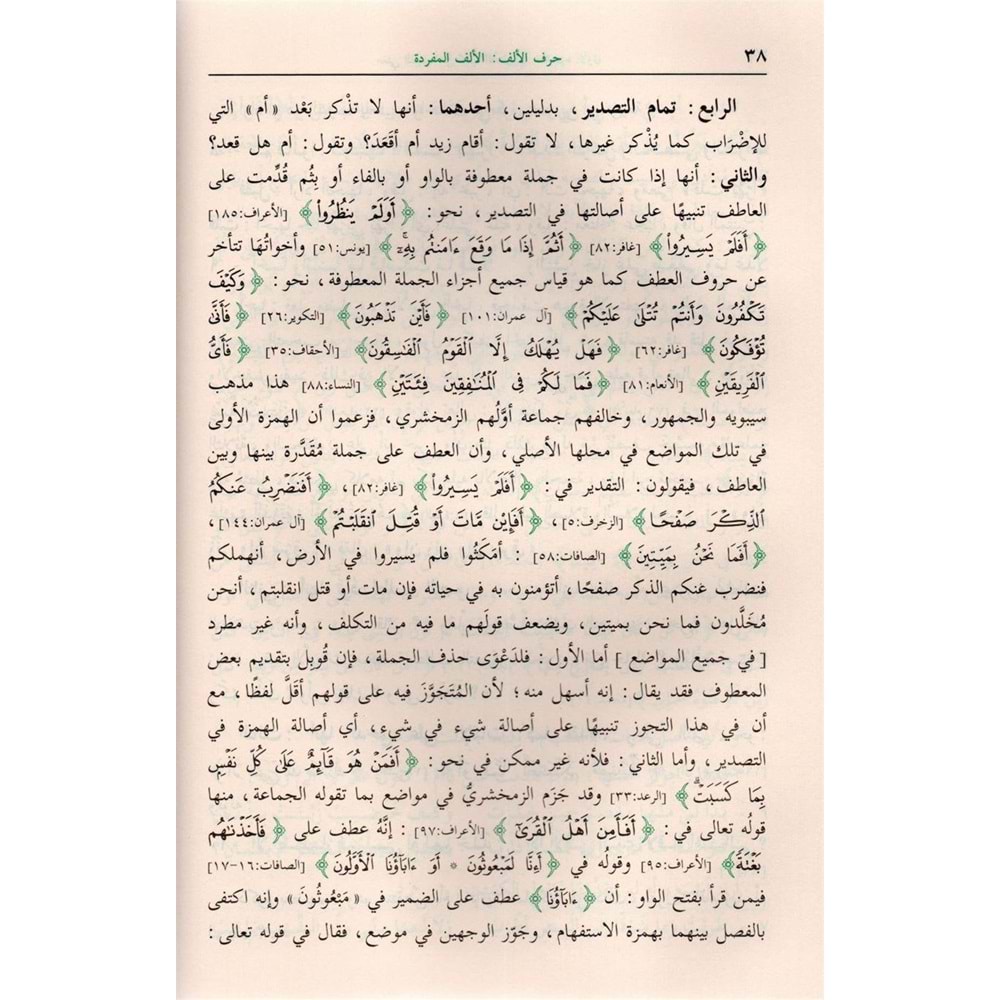 ٣٨
حرف الألف: الألف المفردة
الرابع: تمام التصدير، بدليلين، أحدهما: أنها لا تذكر بَعْد «أم» التي
للإضْرَاب كما يُذْكر غيرها، لا تقول: أقام زيد أم أقَعَدَ؟ وتقول: أم هل قعد؟
والثاني: أنها إذا كانت في جملة معطوفة بالواو أو بالفاء أو بِثُم قُدِّمت على
العاطف تنبيهًا على أصالتها في التصدير، نحو: ﴿أَوَلَمْ يَنظُرُواْ﴾ [الأعراف:١٨٥]
﴿أَفَلَمْ يَسِيرُواْ﴾ [غافر:٨٢] ﴿أَثُمَّ إِذَا مَا وَقَعَ ءَامَنتُم بِهِۦٓ﴾ [يونس:٥١] وأخواتُهَا تتأخر
عن حروف العطف كما هو قياس جميع أجزاء الجملة المعطوفة، نحو: ﴿وَكَيْفَ
تَكْفُرُونَ وَأَنتُمْ تُتْلَىٰ عَلَيْكُمْ﴾ [آل عمران:١٠١] ﴿فَأَيْنَ تَذْهَبُونَ﴾ [التكوير:٢٦] ﴿فَأَنَّىٰ
تُؤْفَكُونَ﴾ [غافر:٦٢] ﴿فَهَلْ يُهْلَكُ إِلَّا ٱلْقَوْمُ ٱلْفَٰسِقُونَ﴾ [الأحقاف:٣٥] ﴿فَأَىُّ
ٱلْفَرِيقَيْنِ﴾ [الأنعام:٨١] ﴿فَمَا لَكُمْ فِى ٱلْمُنَٰفِقِينَ فِئَتَيْنِ﴾ [النساء:٨٨] هذا مذهب
سيبويه والجمهور، وخالفهم جماعة أوَّلُهم الزمخشري، فزعموا أن الهمزة الأولى
في تلك المواضع في محلها الأصلي، وأن العطف على جملة مُقَدَّرة بينها وبين
العاطف، فيقولون: التقدير في: ﴿أَفَلَمْ يَسِيرُواْ﴾ [غافر:٨٢]، ﴿أَفَنَضْرِبُ عَنكُمُ
ٱلذِّكْرَ صَفْحًا﴾ [الزخرف:٥]، ﴿أَفَإِيْن مَّاتَ أَوْ قُتِلَ ٱنقَلَبْتُمْ﴾ [آل عمران:١٤٤]،
﴿أَفَمَا نَحْنُ بِمَيِّتِينَ﴾ [الصافات:٥٨] : أمَكَثُوا فلم يسيروا في الأرض، أنهملكم
فنضرب عنكم الذكر صفحًا، أتؤمنون به في حياته فإن مات أو قتل انقلبتم، أنحن
مُخَلَّدون فما نحن بميتين، ويضعف قولَهم ما فيه من التكلف، وأنه غير مطرد
[في جميع المواضع] أما الأول: فلدَعْوَى حذف الجملة، فإن قُوبِل بتقديم بعض
المعطوف فقد يقال: إنه أسهل منه؛ لأن المُتَجَوَّزَ فيه على قولهم أقَلَّ لفظًا، مع
أن في هذا التجوز تنبيهًا على أصالة شيء في شيء، أي أصالة الهمزة في
التصدير، وأما الثاني: فلأنه غير ممكن في نحو: ﴿أَفَمَنْ هُوَ قَآئِمٌ عَلَىٰ كُلِّ نَفْسٍۭ
بِمَا كَسَبَتْۗ﴾ [الرعد:٣٣] وقد جَزَم الزمخشريُّ في مواضع بما تقوله الجماعة، منها
قولُه تعالى في: ﴿أَفَأَمِنَ أَهْلُ ٱلْقُرَىٰٓ﴾ [الأعراف:٩٧] : إنَّهُ عطف على ﴿فَأَخَذْنَٰهُم
بَغْتَةً﴾ [الأعراف:٩٥] وقولُه في ﴿أَءِنَّا لَمَبْعُوثُونَ * أَوَ ءَابَآؤُنَا ٱلْأَوَّلُونَ﴾ [الصافات:١٦-١٧]
فيمن قرأ بفتح الواو: أن ﴿ءَابَآؤُنَا﴾ عطف على الضمير في «مَبْعُوثُونَ» وإنه اكتفى
بالفصل بينهما بهمزة الاستفهام، وجَوّز الوجهين في موضع، فقال في قوله تعالى: